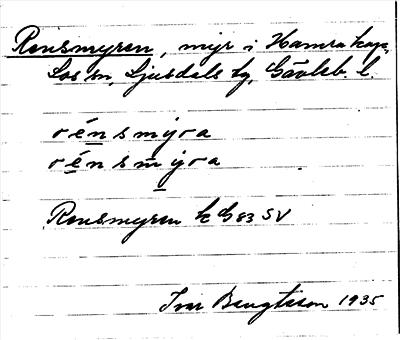 Rensmyren, myr i Hamra kap.,
Los sn, Ljusdals tg, Gävleb. l.
rénsmýra
rénsmýra
Rensmyren k G 83 SV
Ivar Bengtsson 1935